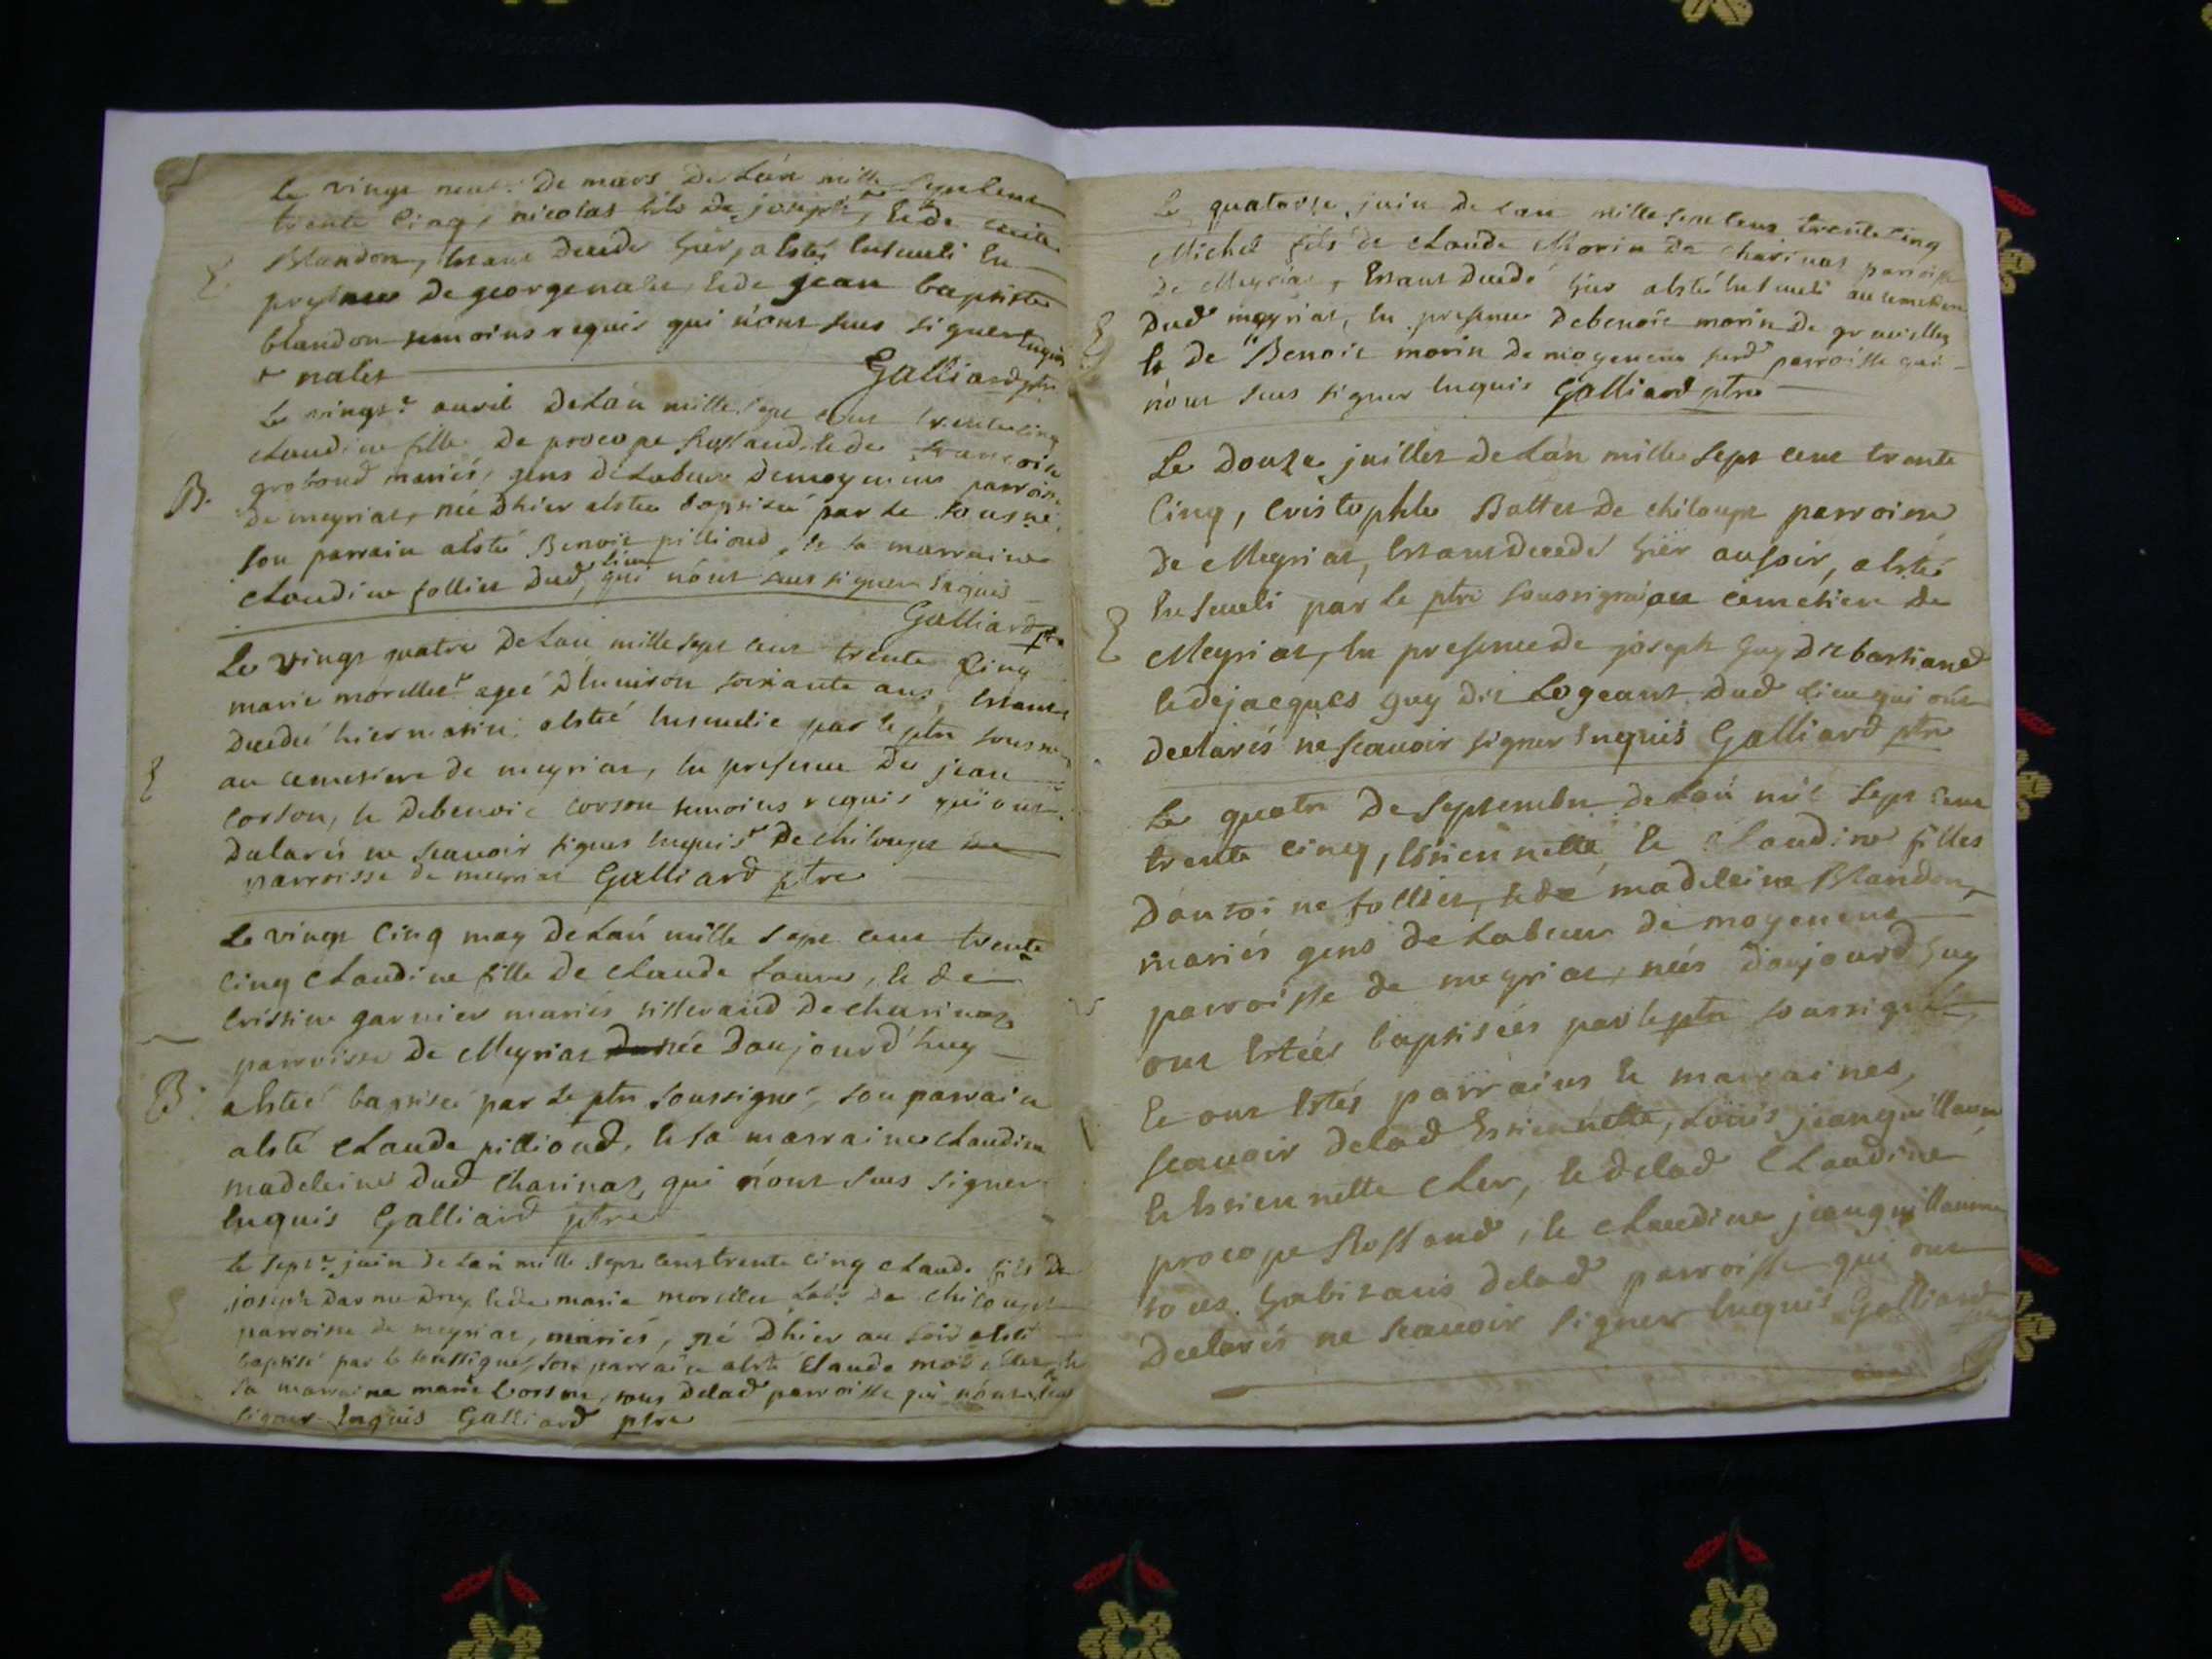 Le vingt neuf de mars de L'an mille sept cent
trente cinq, nicolas fils de joseph, & de
Blandon, estant decedé hier, a esté enseveli en
presence de george nalet & de jean baptiste
blandon temoins requis qui n'ont sceu signer enquis
nalet Galliard ptre
Le vingt avril de L'an mille sept cent trente cinq
B. claudine fille de procope Rossand & de francoise
grobond mariés, gens de Labeur de moyenent parroisse
de meyriat, née d'hier a estée baptisée par le soussigné
son parrain a esté Benoit pilliond, & la marraine
claudine follies dud. lieu, qui n'ont sceu signer enquis
Galliard ptre
Le vingt quatre de L'an mille sept cent trente cinq
marie morellet agée d'environ soixante ans, estant
decedée hier matin, a estée ensevelie par le ptre soussigné
au cemetiere de meyriat, en presence de jean
corson, & de benoit corson temoins requis qui ont
declarés ne scavoir signer enquis de chiloupt
parroisse de meyriat Galliard ptre
Le vingt cinq may de L'an mille sept cent trente
cinq claudine fille de claude, & de
garnier mariés de charinas
parroisse de Meyriat née d'aujourd'huy
B. a esteé baptisée par le ptre soussigné, son parrain
a esté claude pilliond, & sa marraine claudine
madeleine dud. charinas, qui n'ont sceu signer
enquis Galliard ptre
Le sept juin de L'an mille sept cent trente cinq claude fils de
joseph & de marie morellet de chiloupt
parroisse de meyriat, mariés, né d'hier au soir a esté
baptisé par le soussigné, son parrain a esté claude morellet &
sa marraine marie corson, tous de lad. parroisse qui n'ont sceu
signer enquis Galliard ptre
Le quatorze juin de L'an mille sept cent trente cinq
Michel fils de claude Morin de charinas parroisse
de Meyriat, Estant decedé hier a esté enseveli au cemetiere
dud. meyriat, en presence de benoit morin de
& de Benoit morin de moyenent parroisse qui
n'ont sceu signer enquis Galliard ptre
Le douze juillet de L'an mille sept cent trente
cinq, cristophle Battet de chiloupt parroisse
de Meyriat, Estant decedé hier au soir, a esté
enseveli par le ptre soussigné au cimetiere de
Meyriat, en presence de joseph guy dit bastiand
& de jacques guy dit Logeant dud. lieu qui ont
declarés ne scavoir signer Enquis Galliard ptre
Le quatre de septembre de L'an mil sept cent
trente cinq, Estiennette, & claudine filles
d'antoine follies, & de madeleine Blandon,
mariés gens de Labeur de moyenent
parroisse de meyriat, nées d'aujourd'huy
ont estées baptisées par le ptre soussigné,
& ont estés parrains & marraines,
scavoir de lad. Estiennette, Louis jeanguillaume
& Estiennette cler, & de lad. claudine
procope Rossand, & claudine jeanguillaume
tous habitans de lad. parroisse qui ont
declarés ne scavoir signer enquis Galliard
ptre